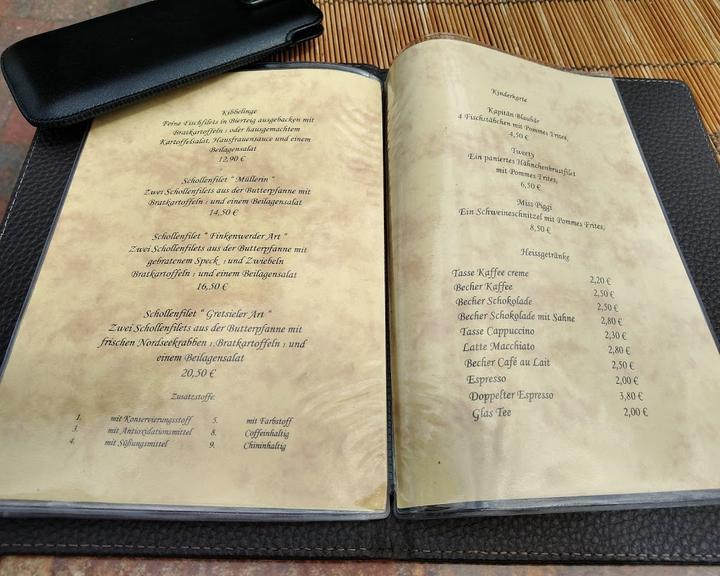 Kibbelinge
Feine Fischfilets in Bierteig ausgebacken mit
Bratkartoffeln 1 oder hausgemachtem
Kartoffelsalat, Hausfrauensauce und einem
Beilagensalat
12,90 €
Schollenfilet " Müllerin "
Zwei Schollenfilets aus der Butterpfanne mit
Bratkartoffeln 1 und einem Beilagensalat
14,50 €
Schollenfilet " Finkenwerder Art "
Zwei Schollenfilets aus der Butterpfanne mit
gebratenem Speck 1 und Zwiebeln
Bratkartoffeln 1 und einem Beilagensalat
16,50 €
Schollenfilet " Gretsieler Art "
Zwei Schollenfilets aus der Butterpfanne mit
frischen Nordseekrabben 1, Bratkartoffeln 1 und
einem Beilagensalat
20,50 €
Zusatzstoffe:
1. mit Konservierungsstoff 5. mit Farbstoff
3. mit Antioxydationsmittel 8. Coffeinhaltig
4. mit Süßungsmittel 9. Chininhaltig
Kinderkarte
Kapitän Blaubär
4 Fischstäbchen mit Pommes Frites,
4,50 €
Tweety
Ein paniertes Hähnchenbrustfilet
mit Pommes Frites,
6,50 €
Miss Piggi
Ein Schweineschnitzel mit Pommes Frites,
8,50 €
Heissgetränke
Tasse Kaffee creme 2,20 €
Becher Kaffee 2,50 €
Becher Schokolade 2,50 €
Becher Schokolade mit Sahne 2,80 €
Tasse Cappuccino 2,30 €
Latte Macchiato 2,80 €
Becher Café au Lait 2,50 €
Espresso 2,00 €
Doppelter Espresso 3,80 €
Glas Tee 2,00 €